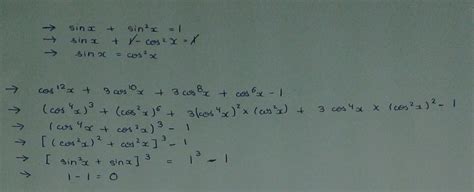 → sinx + sin²x = 1
→ sinx + 1 - cos²x = 1
→ sinx = cos²x
→ cos¹²x + 3cos¹⁰x + 3cos⁸x + cos⁶x - 1
→ (cos⁴x)³ + (cos²x)⁶ + 3(cos⁴x)² × (cos²x) + 3 cos⁴x × (cos²x)² - 1
→ (cos⁴x + cos²x)³ - 1
→ [(cos²x)² + cos²x]³ - 1
→ [sin²x + sinx]³ = 1³ - 1
→ 1 - 1 = 0